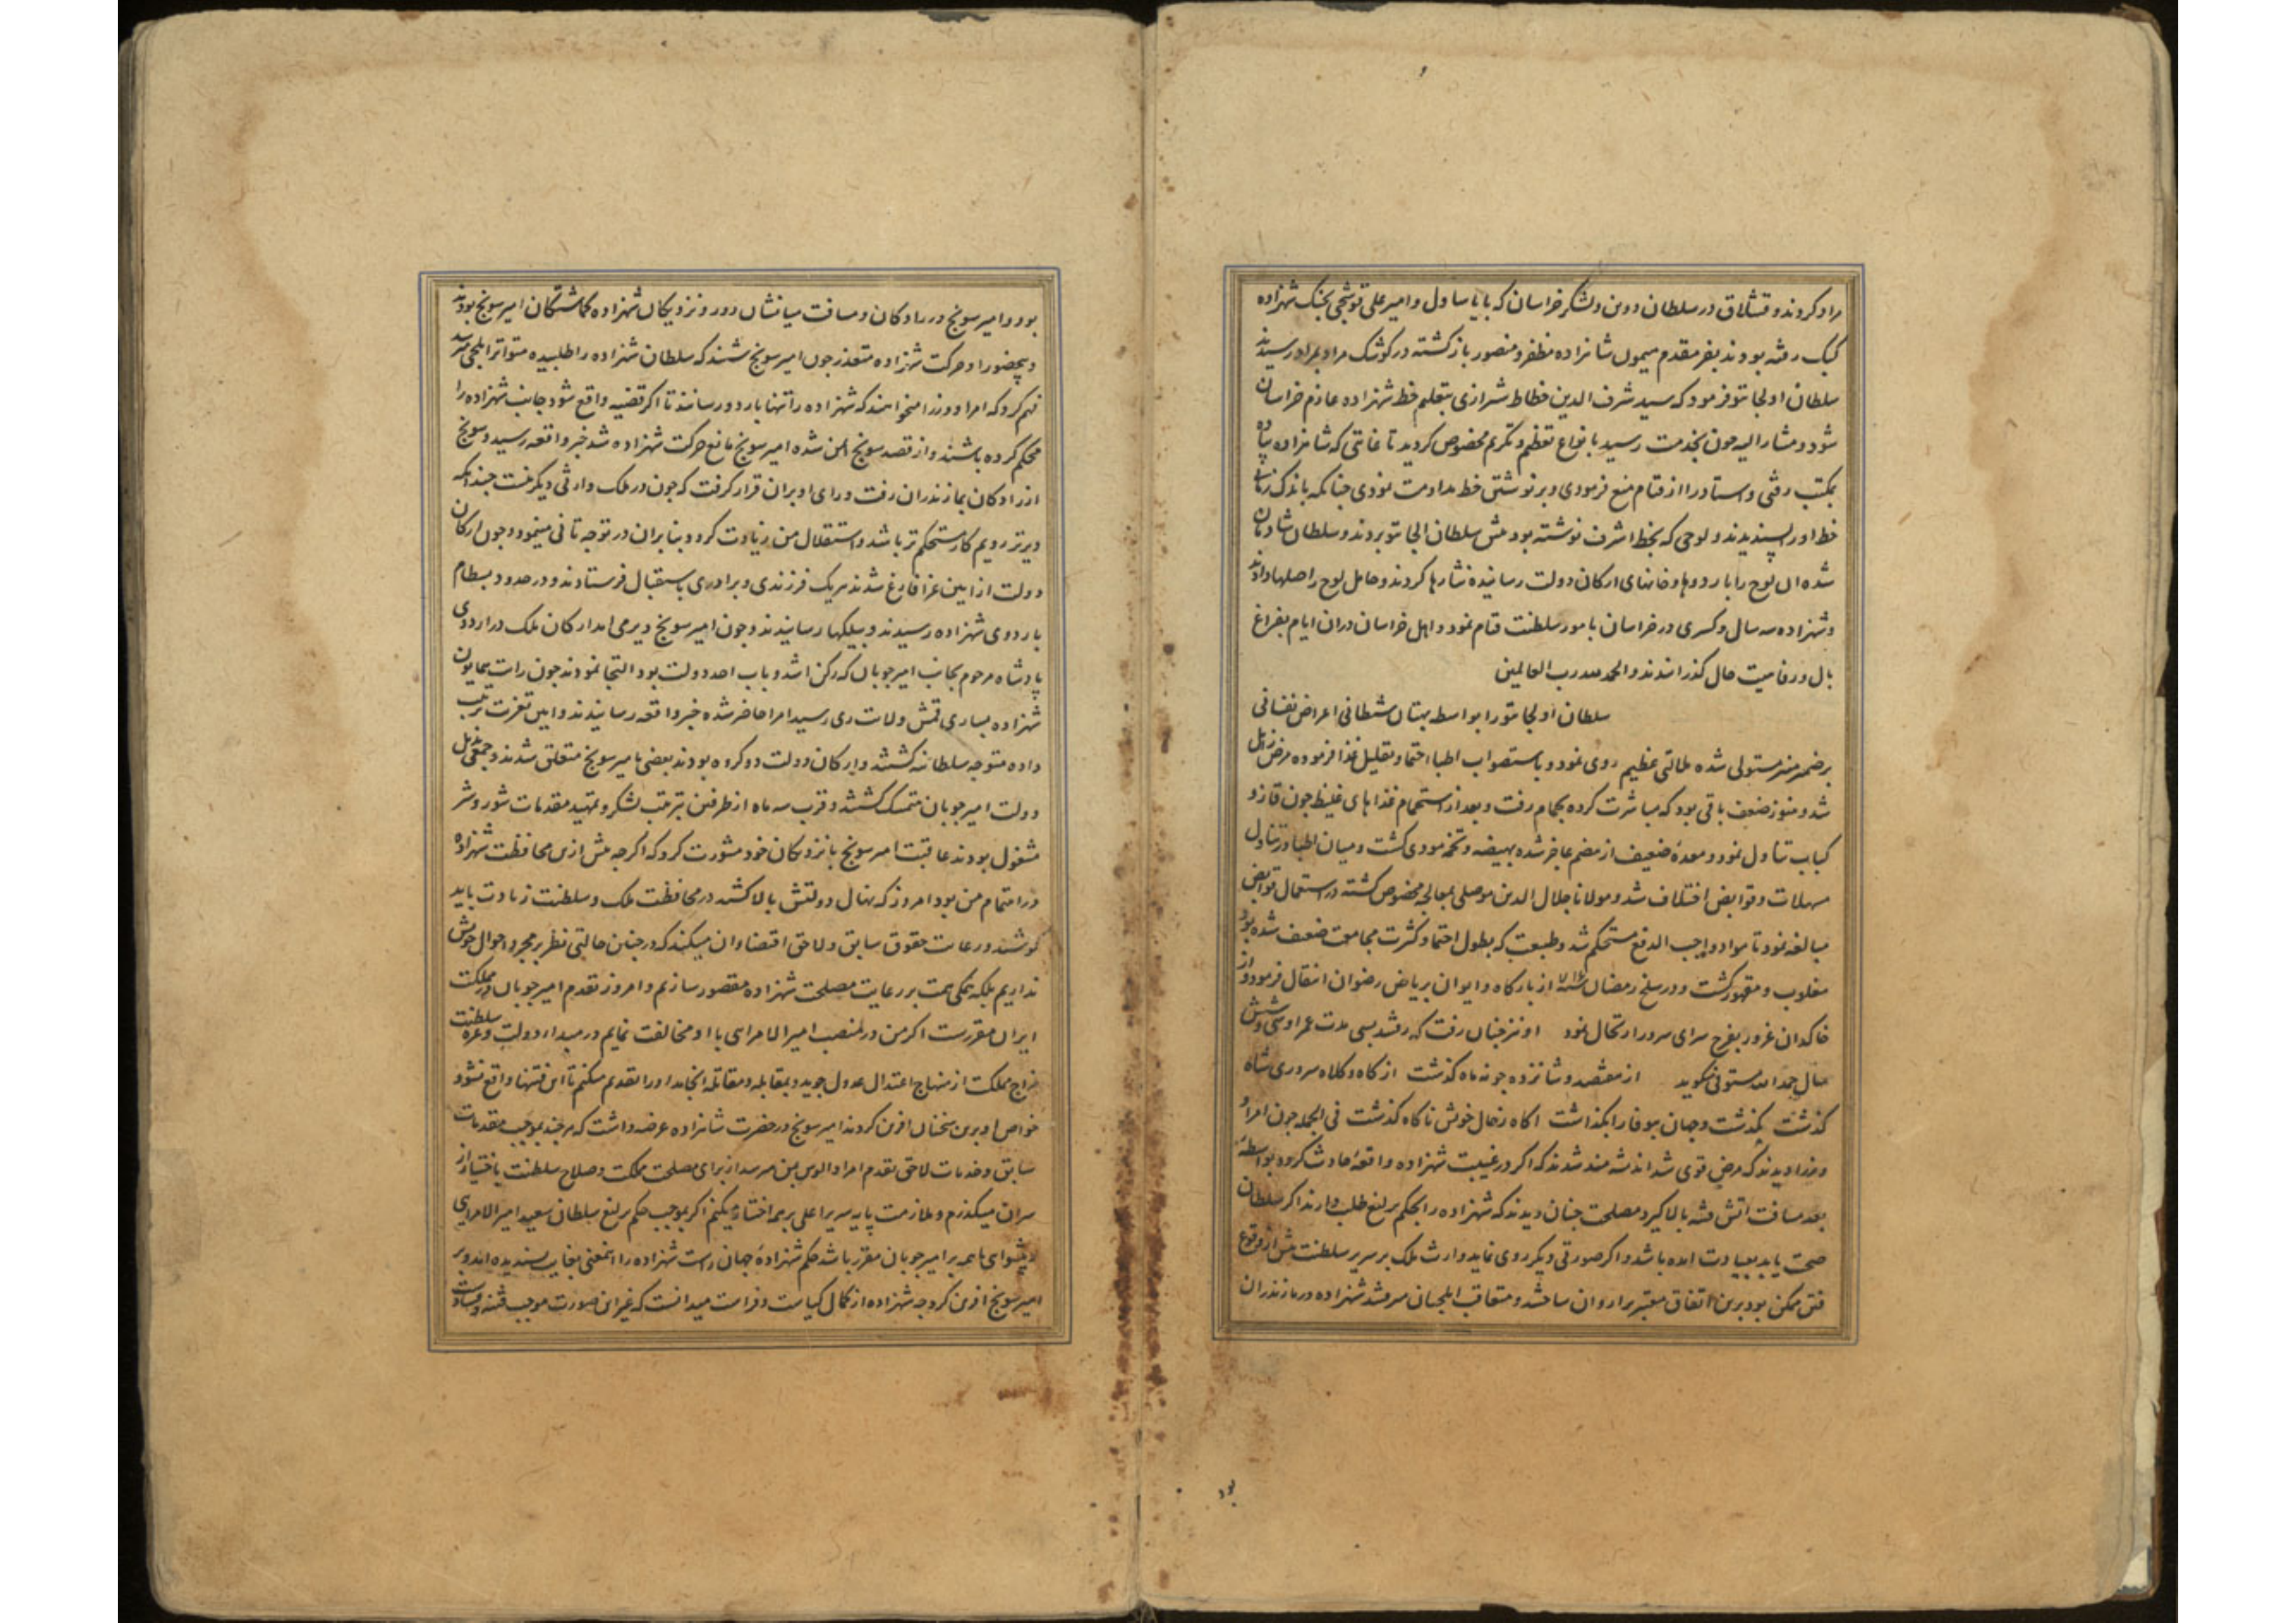 مراد کردند و قشلاق در سلطان دوین و لشکر خراسان که با یساول و امیر علی قوشچی بجنک شهزاده
کبک رفته بودند بفر مقدم میمون شاهزاده مظفر و منصور بازکشته در کوشک مراد بمراد رسیدند
سلطان اولجایتو فرمود که سید شرف الدین خطاط شیرازی بتعلیم خط شهزاده عازم خراسان
شود و مشار الیه چون بخدمت رسید بانواع تعظیم و تکریم مخصوص کردید تا غایتی که شاهزاده پیاده
بمکتب رفتی و استاد را از قیام منع فرمودی و بر نوشتن خط مداومت نمودی چنانکه باندک زمانی
خط او را پسندیدند و لوحی که بخط اشرف نوشته بود پیش سلطان الجایتو بردند و سلطان شادمان
شده ان لوح را باردوها و خانهای ارکان دولت رسانیده نثارها کردند و حامل لوح را صلها دادند
و شهزاده سه سال و کسری در خراسان بامور سلطنت قیام نمود و اهل خراسان در ان ایام بفراغ
بال و رفاهیت حال کذرانیدند و الحمد لله رب العالمین
سلطان اولجایتو را بواسطه بهتان شیطانی اعراض نفسانی
بر ضمیر منیر مستولی شده ملالتی عظیم روی نمود و باستصواب اطبا احتما و تقلیل غذا فرموده مرض زایل
شد و هنوز ضعف باقی بود که مباشرت کرده بحمام رفت و بعد از استحمام غذاهای غلیظ چون قاز و
کباب تناول نمود و معدهٔ ضعیف از هضم عاجز شده بهیضه و تخمه مودی کشت و میان اطبا در تناول
مسهلات و قوابض اختلاف شد و مولانا جلال الدین موصلی بمعالجه مخصوص کشته در استعمال قوابض
مبالغه نمود تا مواد واجب الدفع مستحکم شد و طبیعت که بطول احتما و کثرت مجامعت ضعیف شده بود
مغلوب و مقهور کشت و در سلخ رمضان ۷۱۶ از بارکاه و ایوان بریاض رضوان انتقال فرمود و از
خاکدان غرور بفرح سرای سرور ارتحال نمود او نیز چنان رفت که رفتند بسی مدت عمر او سی و شش
سال حمد الله مستوفی میکوید از هفتصد و شانزده چو نه ماه کذشت از کاه و کلاه سروری شاه
کذشت بکذشت و جهان بیوفا را بکذاشت اکاه ز حال خویش ناکاه کذشت فی الجمله چون امرا و
وزرا دیدند که مرض قوی شد اندیشه مند شدند که اکر در غیبت شهزاده واقعهٔ حادث کردد بواسطهٔ
بعد مسافت اتش فتنه بالا کیرد مصلحت چنان دیدند که شهزاده را بحکم یرلیغ طلب دارند اکر سلطان
صحت یابد بعیادت امده باشد و اکر صورتی دیکر روی نماید وارث ملک بر سریر سلطنت پیش از وقوع
فتن ممکن بود برین اتفاق معتبر برا روان ساختند و متعاقب ایلچیان میرفتند شهزاده در مازندران
بود
بود و امیر سونج در رادکان و مسافت میانشان دور و نزدیکان شهزاده کماشتکان امیر سونج بودند
و بیحضور او حرکت شهزاده متعذر چون امیر سونج شنید که سلطان شهزاده را طلبیده متواتر ایلچی میرسد
فهم کرد که امرا و وزرا میخواهند که شهزاده را تنها باردو رسانند تا اکر قضیه واقع شود جانب شهزاده را
محکم کرده باشند و از قصد سونج ایمن شده امیر سونج مانع حرکت شهزاده شد خبر واقعه رسید و سونج
از رادکان بمازندران رفت و رای او بران قرار کرفت که چون در ملک وارثی دیکر نیست چندانکه
دیرتر رویم کار مستحکم تر باشد و استقلال من زیادت کردد و بنا بران در توجه تانی مینمود و چون ارکان
دولت از ایین عزا فارغ شدند هر یک فرزندی و برادری باستقبال فرستادند و در حدود بسطام
باردوی شهزاده رسیدند و بیلکها رسانیدند و چون امیر سونج دیر می امد ارکان ملک در اردوی
پادشاه مرحوم بجانب امیر چوبان که رکن اشد و باب احد دولت بود التجا نمودند چون رایت همایون
شهزاده بساری قمش ولایت ری رسید امرا حاضر شده خبر واقعه رسانیدند و ایین تعزیت ترتیب
داده متوجه سلطانیه کشتند و ارکان دولت دو کروه بودند بعضی بامیر سونج متعلق شدند و جمعی بذیل
دولت امیر چوبان متمسک کشتند و قرب سه ماه از طرفین بترتیب لشکر و تمهید مقدمات شور و شر
مشغول بودند عاقبت امیر سونج با نزدیکان خود مشورت کرد که اکرچه پیش ازین محافظت شهزاده
در اهتمام من بود امروز که نهال دولتش بالا کشید در محافظت ملک و سلطنت زیادت باید
کوشید و رعایت حقوق سابق و لاحق اقتضاء ان میکند که در چنین حالتی نظر بر مجرد احوال خویش
نداریم بلکه همکی همت بر رعایت مصلحت شهزاده مقصور سازیم و امروز تقدم امیر چوبان در مملکت
ایران مقررست اکر من در منصب امیر الامرایی با او مخالفت نمایم در مبداء دولت و غرهٔ سلطنت
مزاج مملکت از منهاج اعتدال عدول جوید و بمقابله و مقاتله انجامد او را تقدیم میکنم تا این فتنها واقع نشود
خواص او برین سخنان افرین کردند امیر سونج در حضرت شاهزاده عرضه داشت که هر چند بموجب مقدمات
سابق و خدمات لاحق تقدم امرا و الوس بمن میرسد از برای مصلحت مملکت و صلاح سلطنت باختیار از
سران میکذرم و ملازمت پایه سریر اعلی بر همه اختیار میکنم اکر بموجب حکم یرلیغ سلطان سعید امیر الامرایی
و پیشوایی باهم بر امیر چوبان مقرر باشد حکم شهزادهٔ جهان راست شهزاده را اینمعنی بغایت پسندیده امد و بر
امیر سونج افرین کرد چه شهزاده از کمال کیاست و فراست میدانست که غیر این صورت موجب فتنه و فسادست